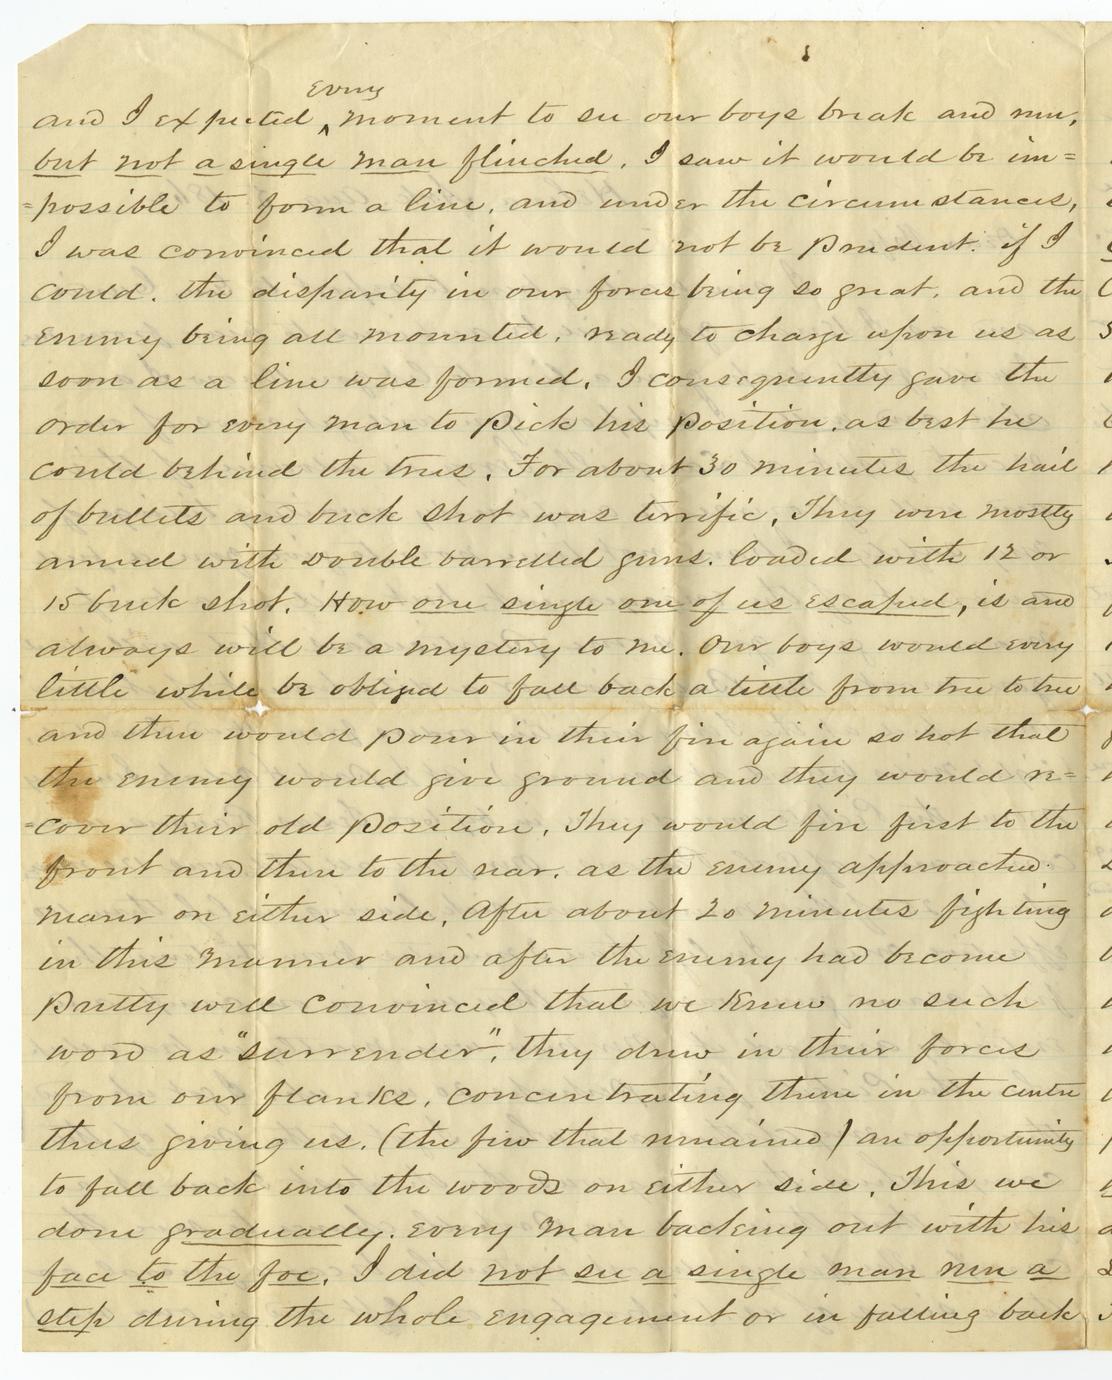 every
and I expected ‸ moment to see our boys break and run,
but not a single man flinched. I saw it would be im=
=possible to form a line, and under the circumstances,
I was convinced that it would not be prudent. if I
could. the disparity in our forces being so great, and the
enemy being all mounted, ready to charge upon us as
soon as a line was formed. I consequently gave the
order for every man to pick his position, as best he
could behind the trees. For about 30 minutes the hail
of bullets and buck shot was terrific. They were mostly
armed with double barrelled guns. loaded with 12 or
15 buck shot. How one single one of us escaped, is and
always will be a mystery to me. Our boys would every
little while be obliged to fall back a little from tree to tree
and then would pour in their fire again so hot that
the enemy would give ground and they would re=
=cover their old position. They would fire first to the
front and then to the rear. as the enemy approached
nearer on either side. After about 20 minutes fighting
in this manner and after the enemy had become
pretty well convinced that we knew no such
word as "surrender", they drew in their forces
from our flanks, concentrating them in the centre
thus giving us. (the few that remained) an opportunity
to fall back into the woods on either side. This we
done gradually. every man backing out with his
face to the foe. I did not see a single man run a
step during the whole engagement or in falling back